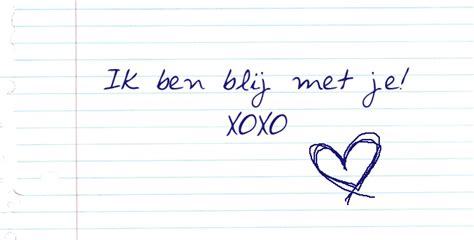 Ik ben blij met je!
XOXO